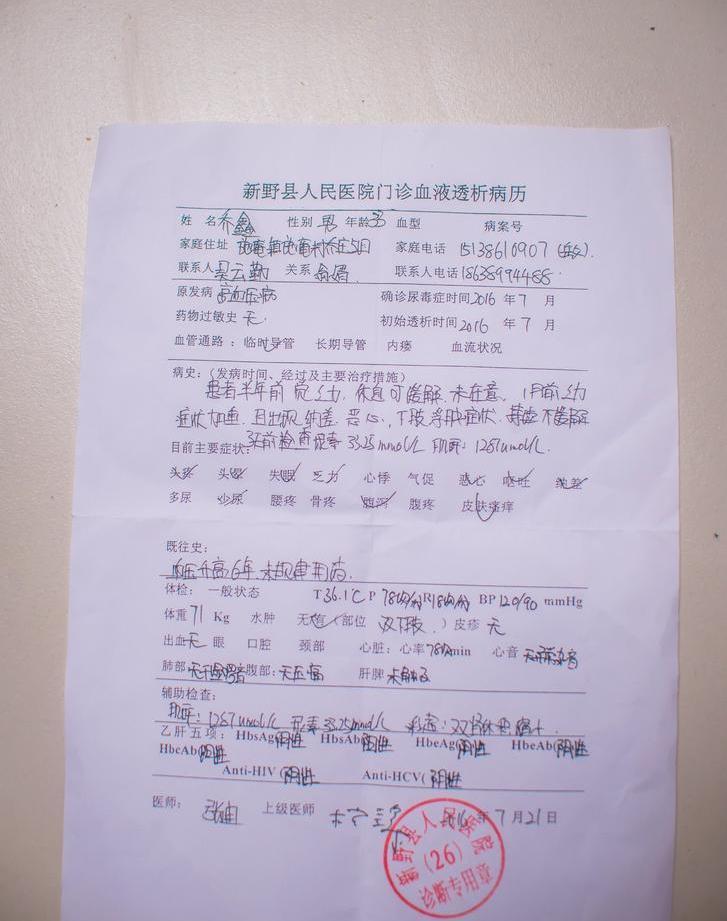 新野县人民医院门诊血液透析病历
姓 名 乔鑫 性别 男 年龄 血型 病案号
家庭住址 家庭电话 15138610907
联系人 吴云勤 关系 翁婿 联系人电话 18638994488
原发病 高血压病 确诊尿毒症时间 2016 年 7 月
药物过敏史 无 初始透析时间 2016 年 7 月
血管通路：临时导管 长期导管 内瘘 血流状况
病史：（发病时间、经过及主要治疗措施）
患者半年前觉乏力，休息可缓解，未在意。1月前乏力
症状加重，且出现纳差、恶心，下肢浮肿症状，不缓解
目前主要症状： 33.25mmol/L 肌酐：1287umol/L.
头疼 头晕 失眠 乏力 心悸 气促 恶心 呕吐 纳差
多尿 少尿 腰疼 骨疼 腹泻 腹疼 皮肤瘙痒
既往史：
血压升高6年，未规律用药.
体检：一般状态 T 36.1℃ P 78次/分 R 18次/分 BP 120/90 mmHg
体重 71 Kg 水肿 无 有（部位 双下肢 ）皮疹 无
出血 无 眼 口腔 颈部 心脏：心率 78次/min 心音
肺部 腹部：无压痛 肝脾 未触及
辅助检查：
肌酐：1287umol/L 尿素 33.25mmol/L 彩超：双肾体积缩小.
乙肝五项：HbsAg(阴性 HbsAb(阴性 HbeAg(阴性 HbeAb(阴性
HbcAb(阴性
Anti-HIV（阴性 Anti-HCV（阴性
医师： 上级医师 2016 年 7 月 21 日
新野县人民医院
(26)
诊断专用章